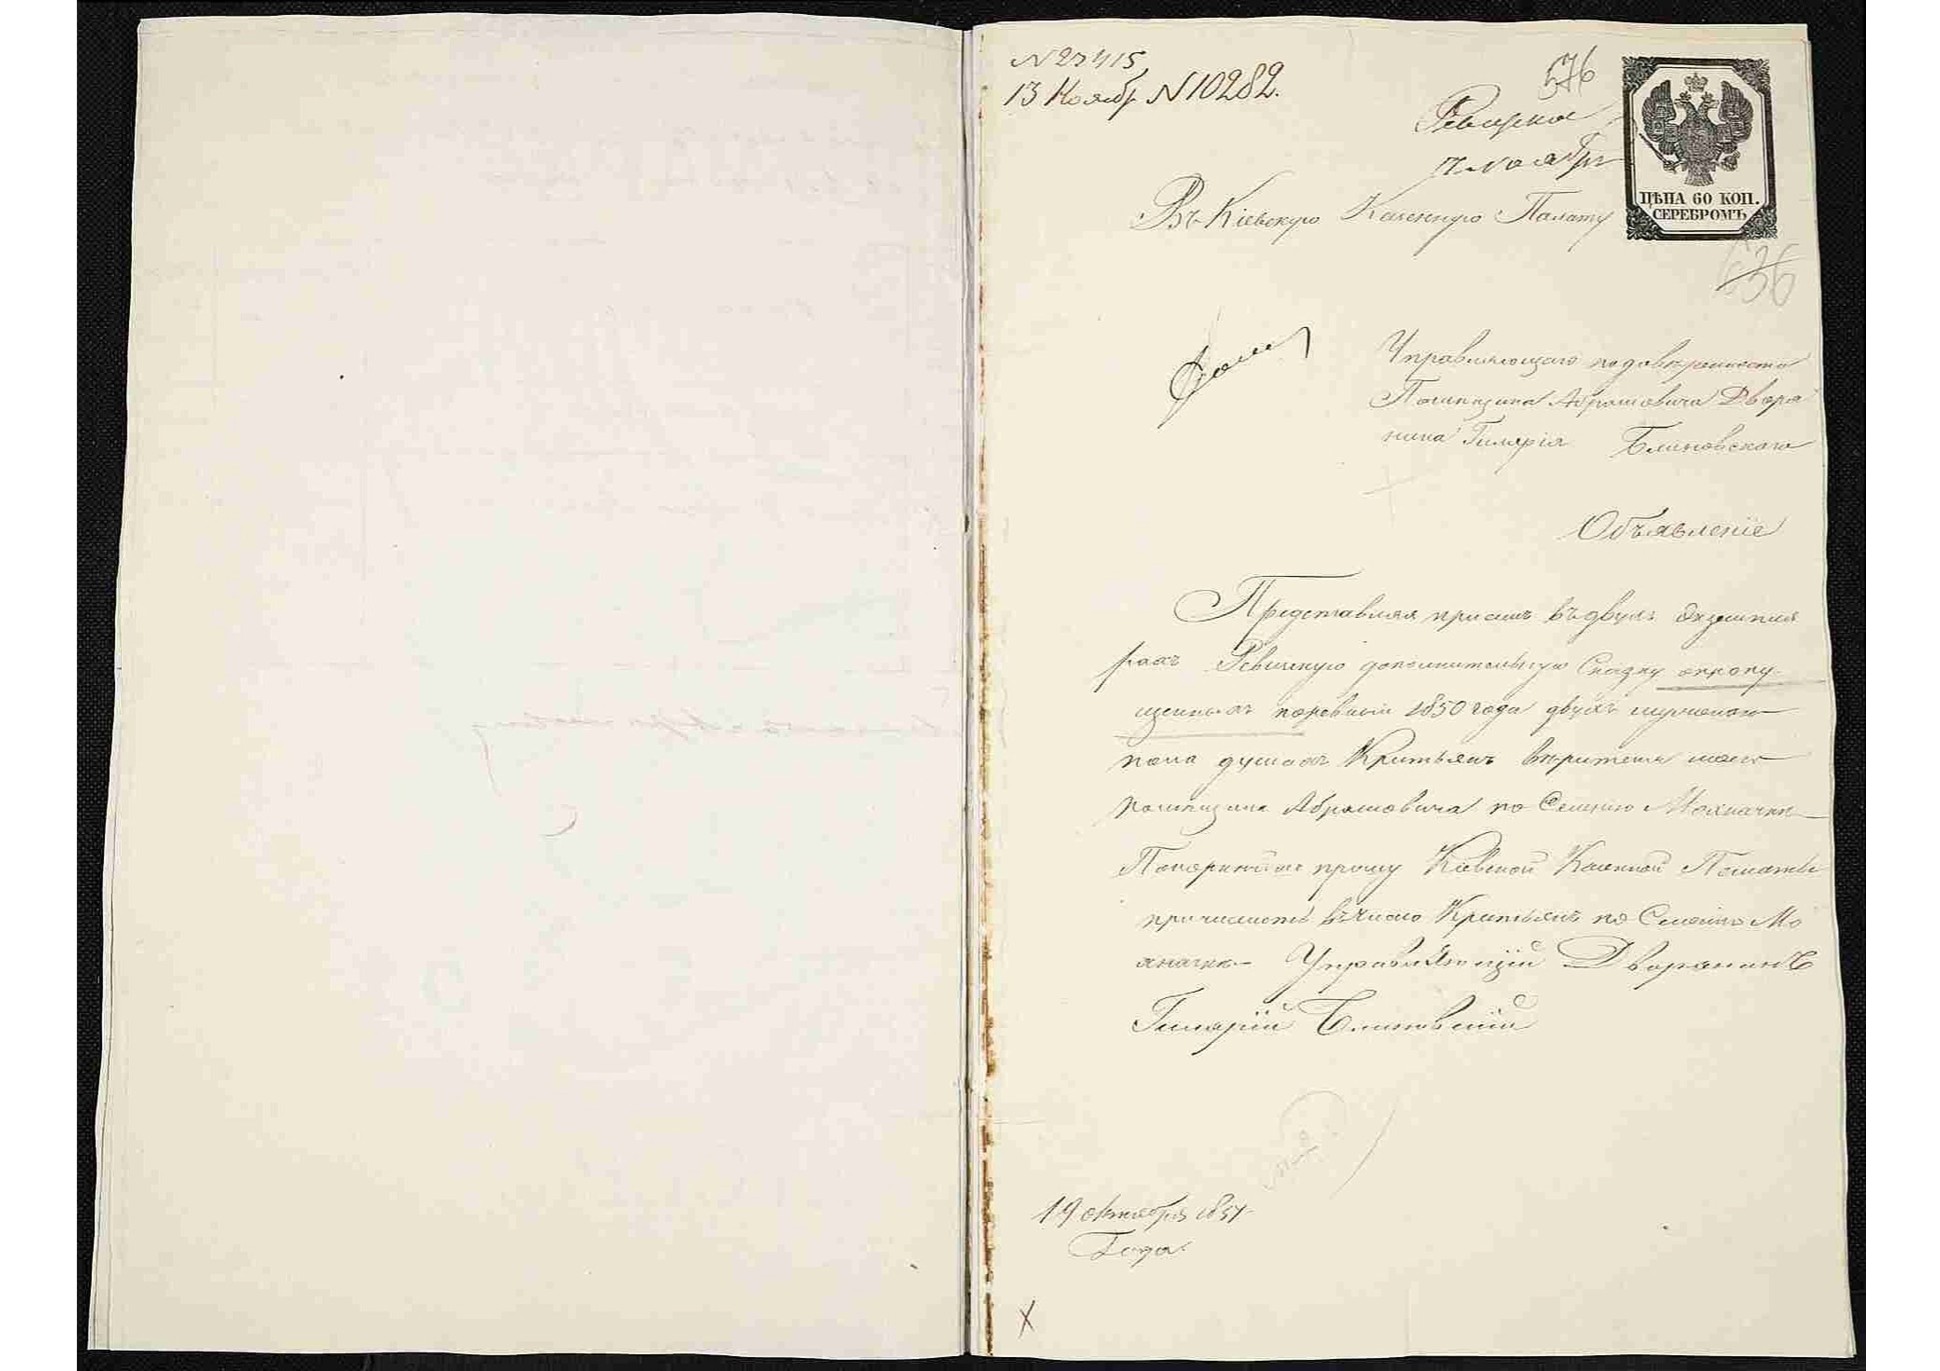 N 23415
13 Ноябр N 10282.
576
7 Ноября
ЦѢНА 60 КОП.
СЕРЕБРОМЪ
Въ Кіевскую Казенную Палату
636
Управляющаго подовѣренности
Помѣщика Абрамовича Дворя
нина Гилярія Блиновскаго
Объявленіе
Представляя присемъ въ двухъ Экземпля
рахъ Ревизскую дополнительную Сказку опропу-
щенныхъ поревизіи 1850 года двухъ мужеска
пола душахъ Крестьянъ вѣрителя моего
помѣщика Абрамовича по Селенію Мохначкѣ
Покорнѣйше прошу Кіевской Казенной Палаты
причислить въ число Крестьянъ по Селенію Мо
хначкѣ - Управляющій Дворянинъ
Гилярій Блиновскій
19 октября 1851
Года
X